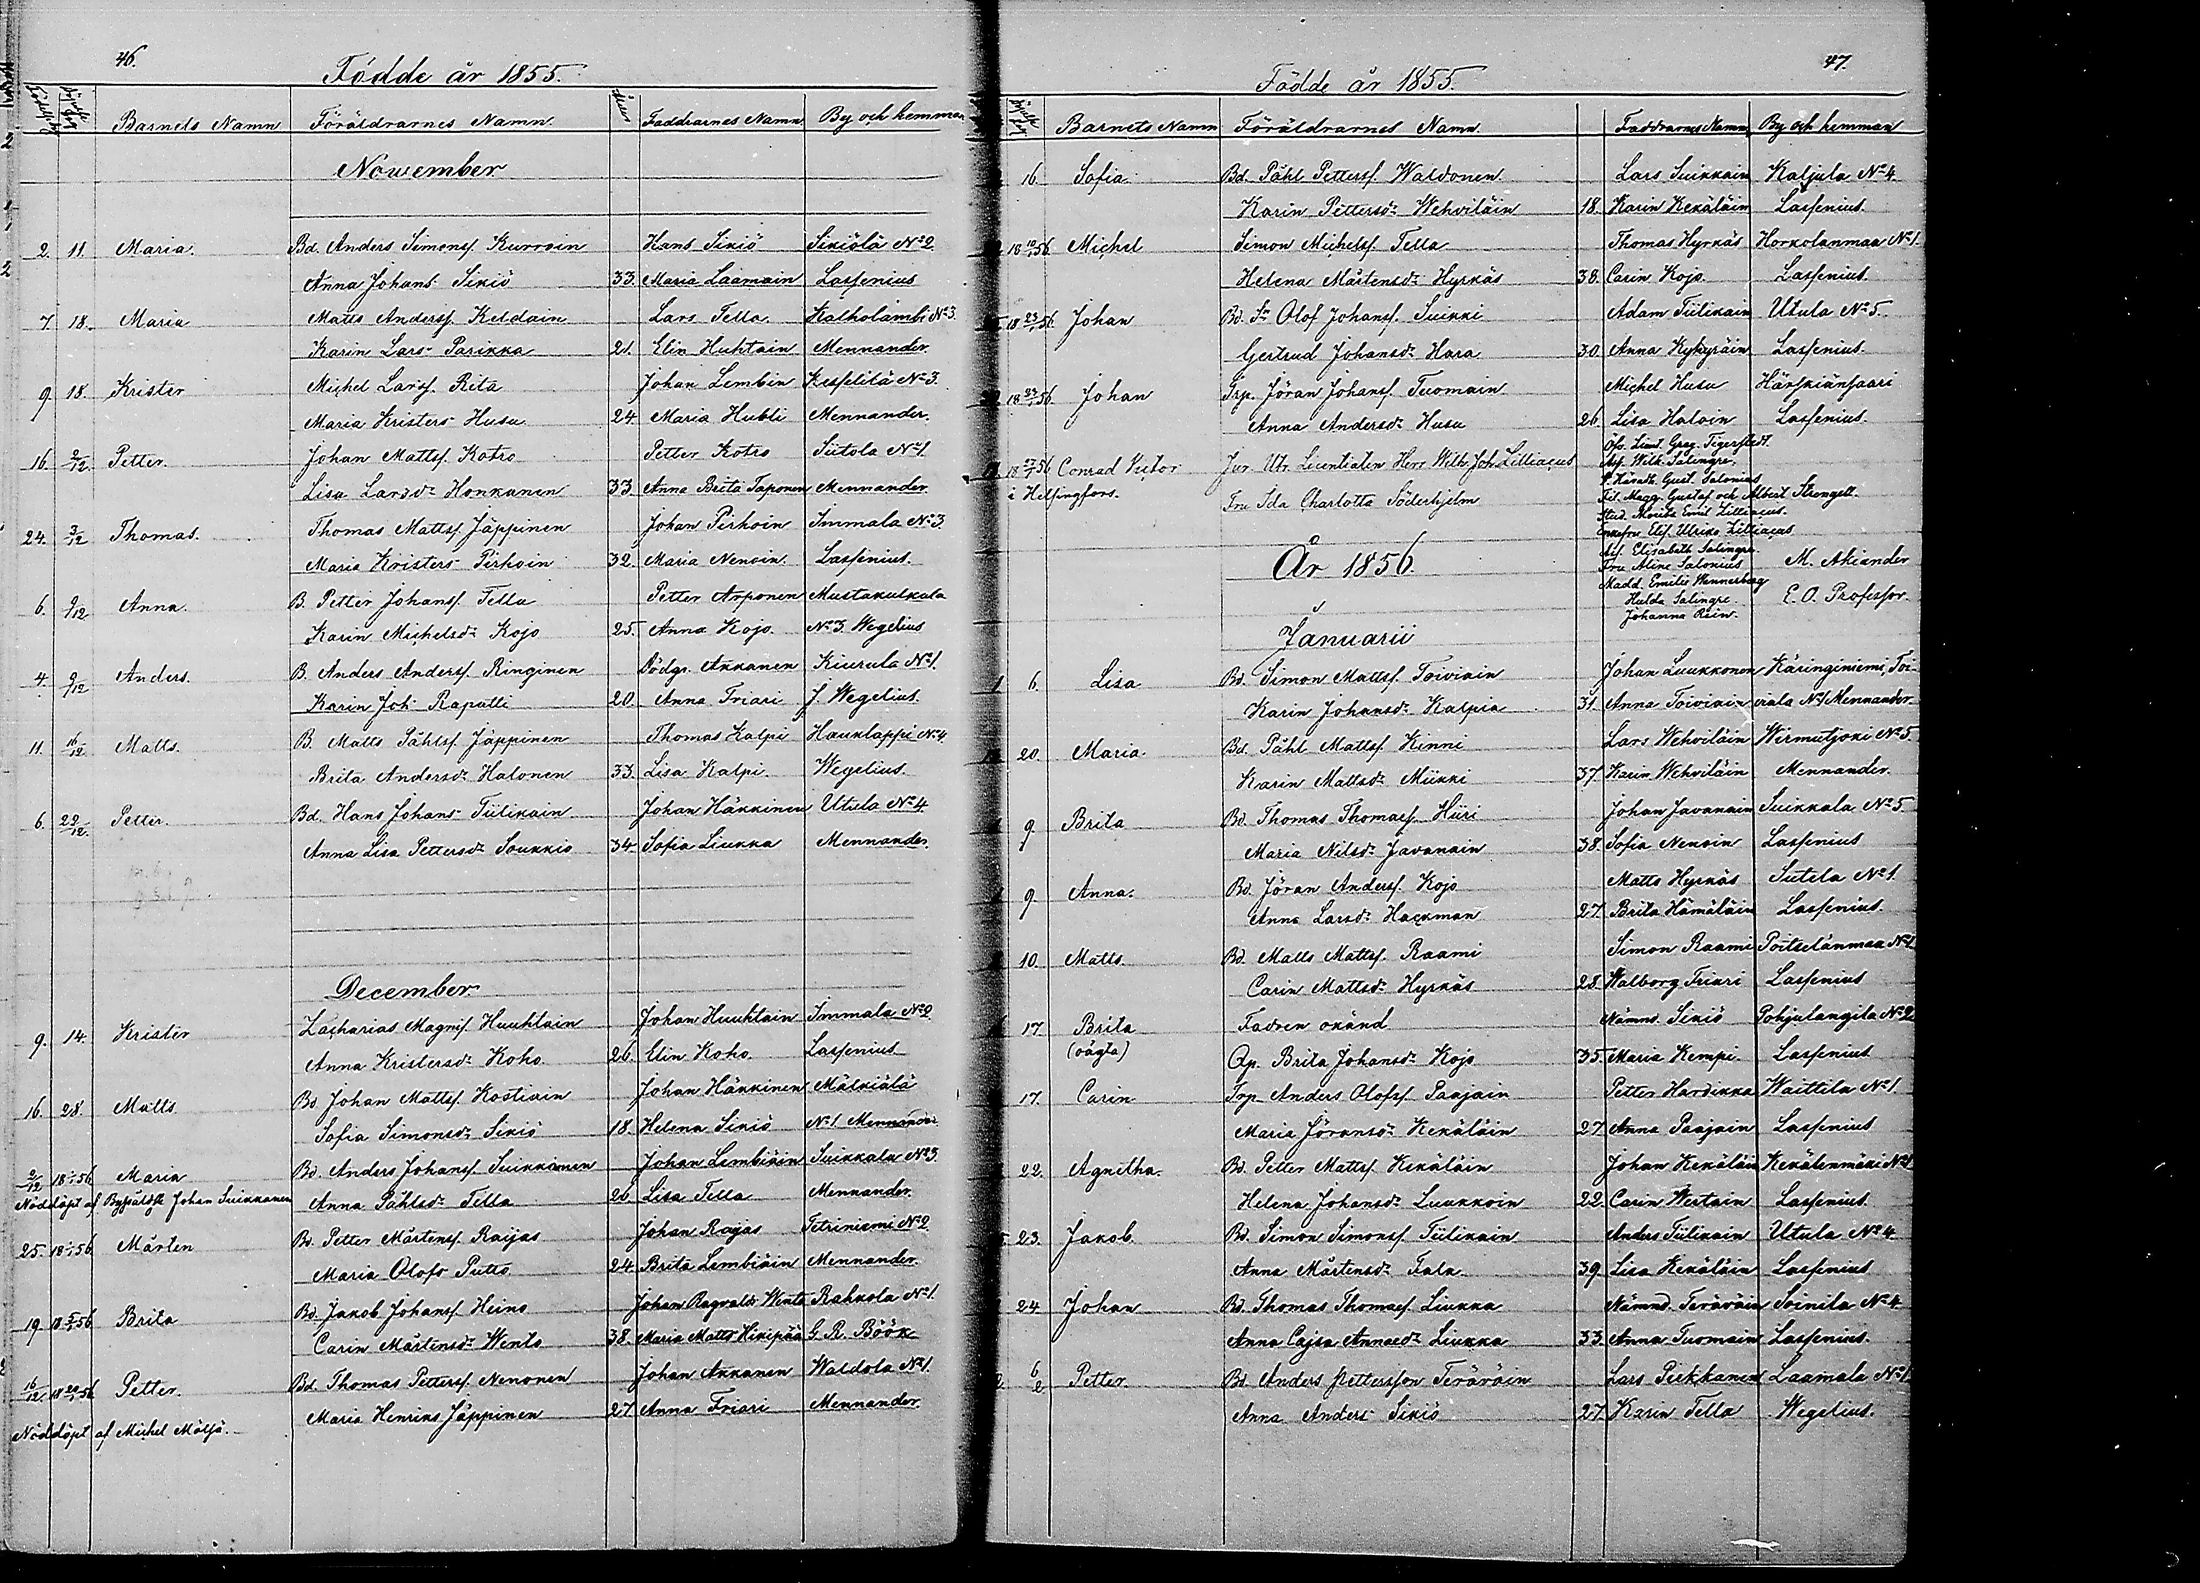 46.
Födde år 1855.
Födelsedag Döpelsedag Barnets Namn Föräldrarnes Namn. Ålder Faddrarnes Namn By och hemman
November
2. 11. Maria. Bd. Anders Simonss. Kurvoin Hans Sikiö Sikiölä No 2
Anna Johansdr Sikiö 33. Maria Laamain Lassenius
7. 18. Maria Matts Anderss. Keldain Lars Tella Kalholambi No 3.
Karin Larsdr Parikka 21. Elin Huhtain Mennander.
9. 18. Krister Michel Larss. Ritä Johan Lembin Kesselitä No 3.
Maria Kristersdr Husu 24. Maria Hubli Mennander.
16. 2/12 Petter. Johan Mattss. Kotro Petter Kotro Siitola No 1.
Lisa Larsdr Honkanen 33. Anna Brita Taponen Mennander.
24. 3/12 Thomas. Thomas Mattss. Jäppinen Johan Pirhoin Immala No 3.
Maria Kristersdr Pirhoin 32. Maria Nenoin. Lassenius.
6. 9/12 Anna. B. Petter Johanss. Tella Petter Arponen Mustakulkula
Karin Michelsdr Kojo 25. Anna Kojo. No 3. Wegelius
4. 9/12 Anders. B. Anders Anderss. Ringinen Dödgr. Ankanen Kiurula No 1.
Karin Joh. Rapatti 20. Anna Friari J. Wegelius.
11. 16/12 Matts. B. Matts Påhlss. Jäppinen Thomas Kalpi Hauklappi No 4
Brita Andersdr Halonen 33. Lisa Kalpi Wegelius.
6. 22/12. Petter. Bd. Hans Johans Tiilikain Johan Häkkinen Utula No 4
Anna Lisa Pettersdr Soukkio 34. Sofia Liukka Mennander.
December.
9. 14. Krister Zacharias Magnis. Huuhtain Johan Huuhtain Immala No 2.
Anna Kristersdr Koho. 26. Elin Koho Lassenius
16. 28. Matts. Bd Johan Mattss. Kostiain Johan Häkkinen Mälkiälä
Sofia Simonsdr Sikiö 18. Helena Sikiö No 1. Mennander
2/12 18 1/1 56 Maria Bd. Anders Johanss. Suikkainen Johan Lembiäin Suikkala No 3.
Nöddöpt af Johan Suikkanen Anna Påhlsdr Tella 26. Lisa Tella Mennander.
25. 18 1/1 56 Mårten Bd. Petter Mårtenss. Raijas Johan Raijas Tetriniemi No 2.
Maria Olofs Putto 24. Brita Lembiäin Mennander.
19. 18 5/1 56 Brita Bd. Jakob Johanss. Heino Johan Ragvalds Wento Rahkola No 1.
Carin Mårtensdr Wento 38. Maria Matts Hikipää G. R. Böök
16/12 18 20/1 56 Petter. Bd. Thomas Petterss. Nenonen Johan Ankanen Waldola No 1.
Maria Henriks Jäppinen 27 Anna Friari Mennander.
Nöddöpt af Michel Mäljä.
47.
Födde år 1855.
Barnets Namn Föräldrarnes Namn. Faddrarnes Namn By och hemman
16. Sofia. Bd. Påhl Petterss. Waldonen Lars Suikkain Kaljula No 4.
Karin Pettersdr Wehviläin 18. Karin Kekäläin Lassenius.
18 10/1 56 Michel Simon Michelss. Tella Thomas Hyrkäs Horkolanmaa No 1.
Helena Mårtensdr Hyrkäs 38. Carin Kojo Lassenius.
18 23/1 56. Johan Bd. Sn Olof Johanss. Suikki Adam Tiilikain Utula No 5.
Gertrud Johansdr Hara 30. Anna Kykyräin Lassenius.
18 27/1 56. Johan Trp. Jöran Johanss. Tuomain. Michel Husu Härskiänsaari
Anna Andersdr Husu 26. Lisa Haloin Lassenius.
18 27/1 56 Conrad Victor Jur. Utr. Licentiaten Herr Wilh. Joh. Lilliacus
i Helsingfors. Fru Ida Charlotta Söderhjelm
Öfv. Lieut. Greg. Tigerstedt.
Asf. Wilh. Salingre.
Härads. Gust. Salonius
Fil. Magg. Gustaf och Albert Strengell.
Stud. Moritz Emil Lilliacus.
Enkefru Elis. Ulrika Lilliacus
Asf. Elisabeth Salingre.
Fru Aline Salonius M. Akiander
Madd. Emilie Wennerberg
Hulda Salingre E. O. Professor.
Johanna Rein.
År 1856.
Januarii
6. Lisa Bd. Simon Mattss. Toiviain Johan Luukkonen Käringiniemi, Toi-
Karin Johansdr Kalpia 31. Anna Toiviain viala No 1 Mennander
20. Maria Bd. Påhl Mattss. Kinni Lars Wehviläin Wirmutjoki No 5.
Karin Mattsdr Miikki 37. Karin Wehviläin Mennander.
9. Brita Bd. Thomas Thomass. Hiiri Johan Javanain Suikkala No 5
Maria Nilsdr Javanain 38. Sofia Nenoin Lassenius
9. Anna. Bd. Jöran Anderss. Kojo Matts Hyrkäs Sutela No 1.
Anna Larsdr Hackman 27. Brita Hämäläin Lassenius.
10. Matts Bd. Matts Mattss. Raami Simon Raami Poitselänmaa No 1.
Carin Mattsdr Hyrkäs 28. Walborg Friari Lassenius
17. Brita Fadren okänd Nämnd. Sikiö Pohjalangila No 2.
(oägta) Qp. Brita Johansdr Kojo 35. Maria Kempi. Lassenius
17. Carin Trp. Anders Olofss. Paajain Petter Hardikka Waittila No 1.
Maria Jöransdr Kekäläin 27. Anna Paajain Lassenius
22. Agnitha. Bd. Petter Mattss. Kekäläin Johan Kekäläin Kekälenmäki No 1
Helena Johansdr Luukkoin 22. Carin Wertain Lassenius.
23. Jakob. Bd. Simon Simonss. Tiilikain Anders Tiilikain Utula No 4.
Anna Mårtensdr Tala 39. Lisa Kekäläin Lassenius
24 Johan Bd. Thomas Thomass. Liukka Nämnd. Teräväin Soinila No 4.
Anna Cajsa Annaedr Liukka 33. Anna Tuomain Lassenius.
6/2 Petter. Bd. Anders Pettersson Teräväin Lars Pirkkanen Laamala No 1.
Anna Anders Sikiö 27. Karin Tella Wegelius.